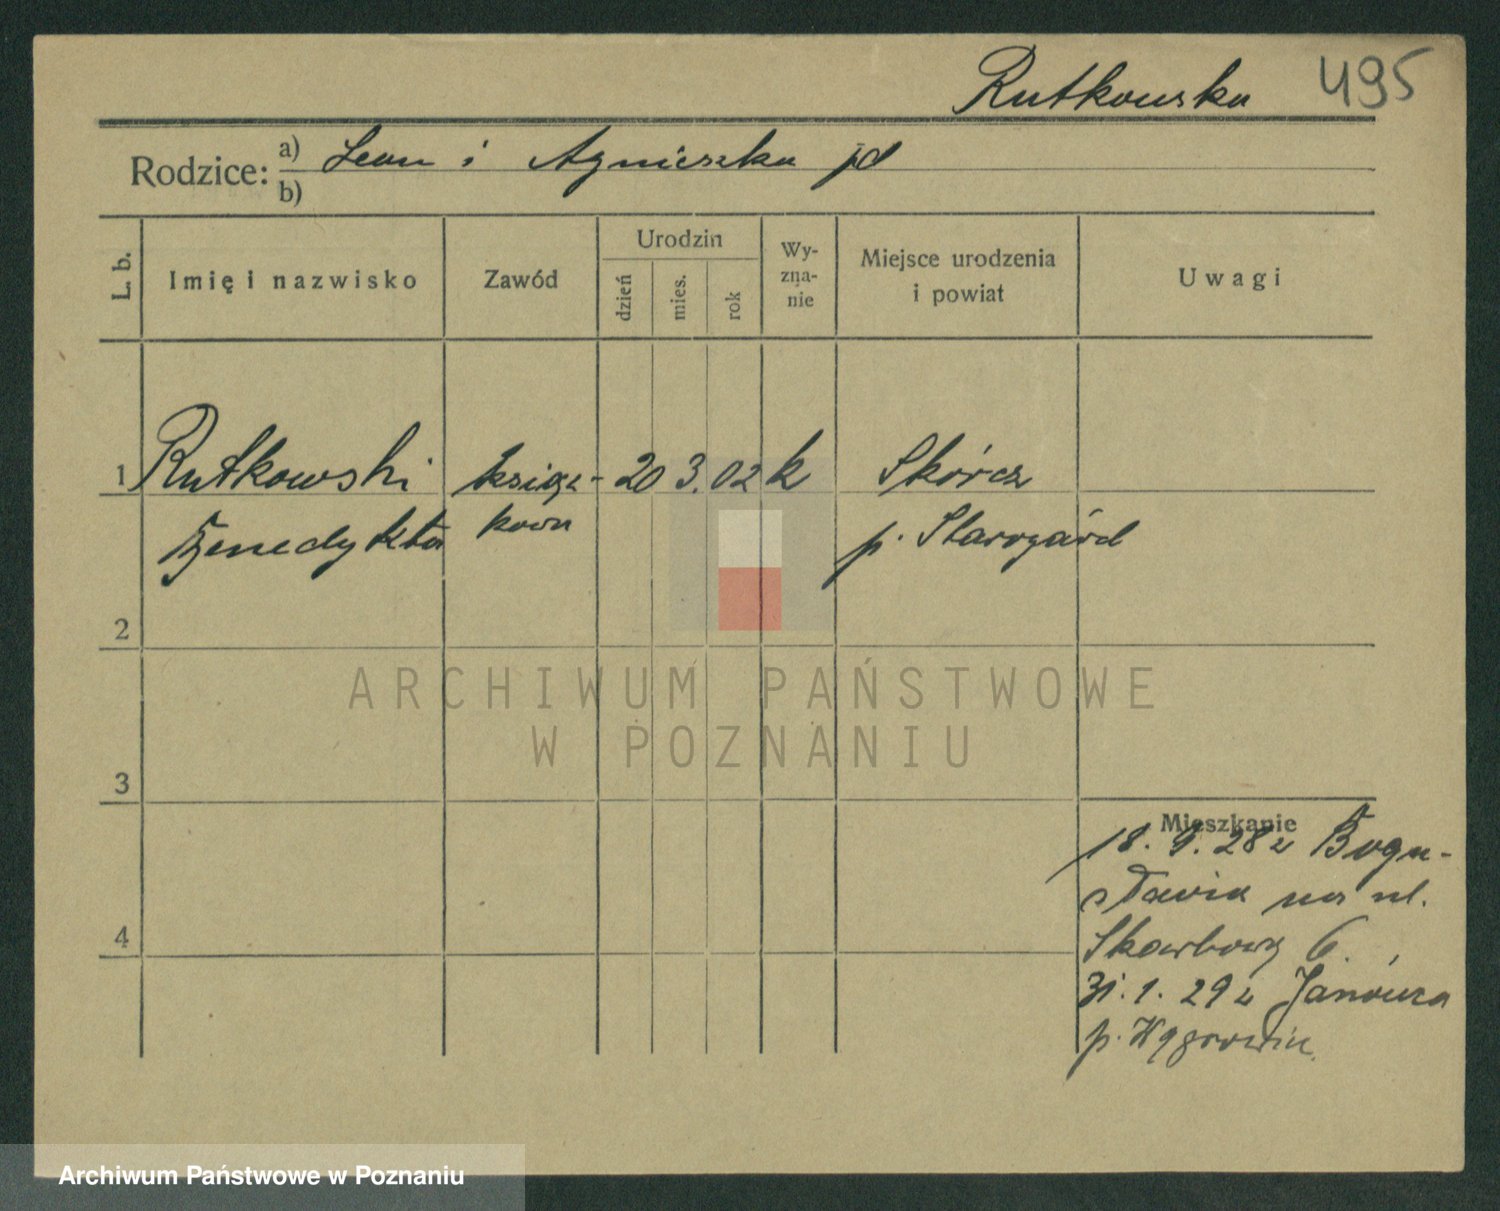 Rutkowska 495
Rodzice: a) Leon i Agnieszka jd
b)
L. b. Imię i nazwisko Zawód Urodzin dzień mies. rok Wy-zna-nie Miejsce urodzenia i powiat Uwagi
1 Rutkowski księż- 20 3. 02 k Skórcz
Benedykta kowa p. Starogard
2
ARCHIWUM PAŃSTWOWE
W POZNANIU
3
Mieszkanie
18. 9. 28 z Bogu-
sławia na ul.
Skarbową 6.
4
31. 1. 29 z Janówca
p. Wągrowiec
Archiwum Państwowe w Poznaniu